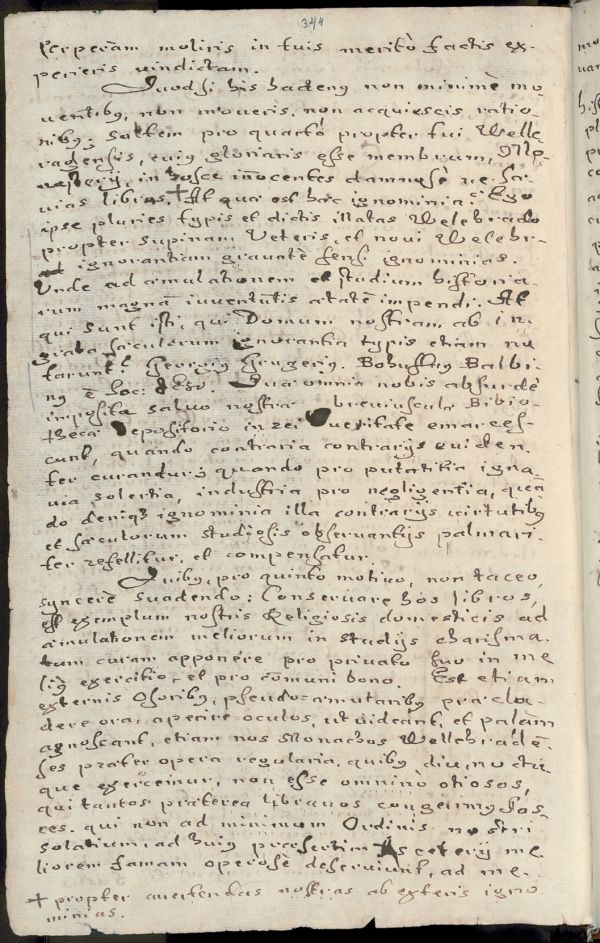 344
Perperàm moliris in tuis meritò factis ex-
perieris vindictam.
Quod si his hactenq non minimè mo
ventibq, non moveris, non acquiescis ratio-
nibq; saltem pro quartò propter tui Welle-
radensis, cuiq gloriaris esse membrum, Mo-
nasterij, in hosce innocentes damnosè ne sæ-
vias libros, + At qua est hæc ignominia? Ego
ipse pluries typis et dictis illatas Welehrado
propter supinam Veteris, et novi Welehr-
ignorantiam gravatè sensi ignominias.
Unde ad æmulationem et studium historia-
rum magnã iuventutis ætatẽ impendi. At
qui sunt isti, qui Domum nostram ab in-
grata sæculorum ignorantia typis etiam no
tarunt? Georgiq Crugeriq, Bohuslaq Balbi-
nq ẽ Soc: Jesu. Quæ omnia nobis absurdè
imposita salvo nostræ breviusculæ Biblio-
thecæ depositorio in rei veritate emarces-
cunt, quando contraria contrarijs eviden-
ter curantur; quando pro putatitia igna-
via solertia, industria pro negligentia, quã
do deniq; ignominia illa contrarijs virtutibq
et sæculorum studiosis observantijs palmari-
ter refellitur, et compensatur.
Quibq, pro quinto motivo, non taceo,
syncerè suadendo: Conservare hos libros,
est exemplum nostris Religiosis domesticis ad
æmulationem meliorum in studijs charissima-
tum curam apponere pro privato suo in me
liq exercitio, et pro cõmuni bono. Est etiam
externis Osoribq, pseudoæmutaribq præclu-
dere ora, aperire oculos, ut videant, et palàm
agnoscant, etiam nos Monachos Wellehradẽ-
ses præter opera regularia, quibq diu noctu-
que exercemur, non esse omninò otiosos,
qui tantos præterea librarios congerimq fas-
ces. qui non ad minimum Ordinis nostri
solatium, ad huiq præsertim Asceterij me
liorem famam operosè deserviunt, ad me-
+ propter avertendas nostras ab exteris igno
minias.